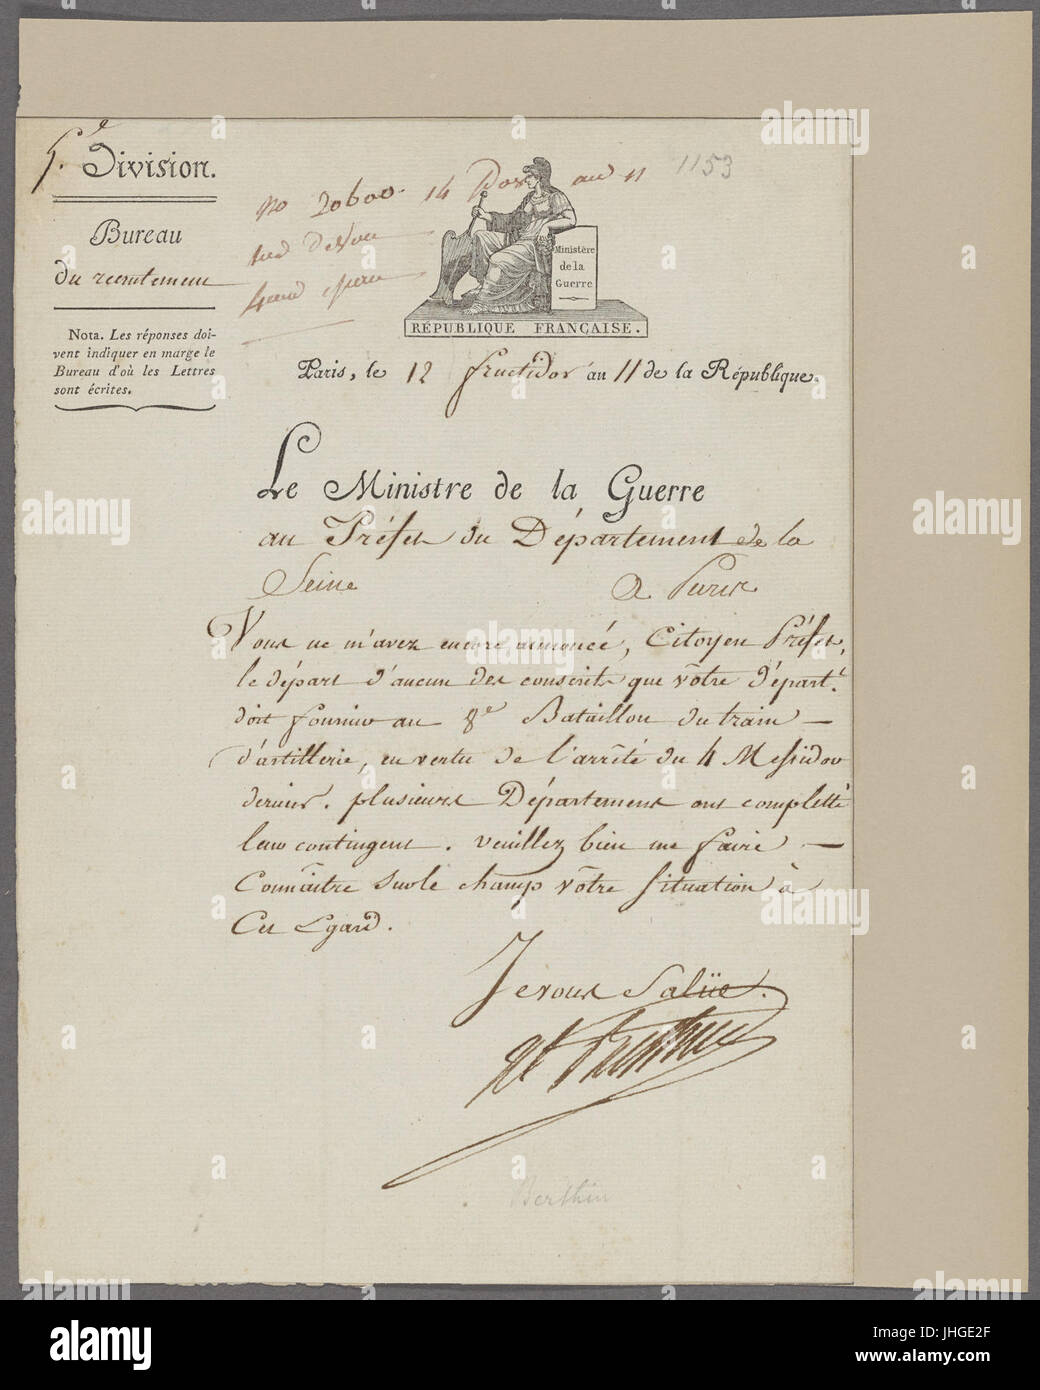 5.e Division.
Bureau
du recrutement
Nota. Les réponses doi-
vent indiquer en marge le
Bureau d'où les Lettres
sont écrites.
no 20600. 14
an 11
1153
Ministère
de la
Guerre
RÉPUBLIQUE FRANÇAISE.
Paris, le 12 fructidor an 11 de la République.
Le Ministre de la Guerre
au Préfet du Département de la
Seine A Paris
Vous ne m'avez encore annoncé, Citoyen Préfet,
le départ d'aucun des conscrits que vôtre départ.t
doit fournir au 8e Bataillon du train —
d'artillerie, en vertu de l'arrêté du 4 Messidor
dernier. plusieurs Départements ont completté
leur contingent. veuillez bien me faire —
Connaître sur le champ vôtre situation à
Cet Egard.
Je vous Salüe.
Berthier
a alamy stock photo
alamy
Image ID: JHGE2F
www.alamy.com